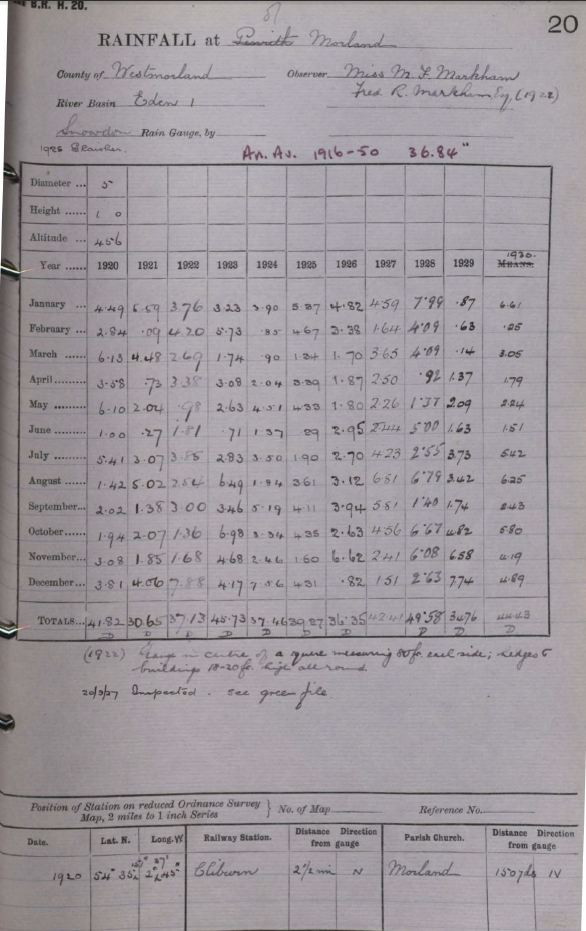 B.R. H. 20.
20
RAINFALL at Penrith Morland
County of Westmorland Observer Miss M. F. Markham
Fred R. Markham, Esq, (1922)
River Basin Eden 1
Snowdon Rain Gauge, by
1925
An. Av. 1916-50 36.84"
Diameter ... 5
Height ...... 1 0
Altitude ... 456
Year ...... 1920 1921 1922 1923 1924 1925 1926 1927 1928 1929 1930. MEANS.
January ... 4.49 5.59 3.76 3.23 3.90 5.37 4.82 4.59 7.99 .87 6.61
February ... 2.84 .09 4.20 5.73 .85 4.67 3.38 1.64 4.09 .63 .25
March ... 6.13 4.48 2.69 1.74 .90 1.34 1.70 3.65 4.09 .14 3.05
April ... 3.58 .73 3.38 3.08 2.04 3.39 1.87 2.50 .92 1.37 1.79
May ... 6.10 2.04 .98 2.63 4.51 4.33 1.80 2.26 1.37 2.09 2.24
June ... 1.00 .27 1.81 .71 1.37 .29 2.95 5.00 1.63 1.51
July ... 5.41 3.07 3.85 2.83 3.50 1.90 2.70 4.23 2.55 3.73 5.42
August ... 1.42 5.02 2.54 6.49 1.94 3.61 3.12 6.51 6.79 3.42 6.25
September ... 2.02 1.38 3.00 3.46 5.19 4.11 3.94 5.81 1.40 1.74 2.43
October ... 1.94 2.07 1.36 6.98 3.34 4.35 2.63 4.56 6.67 4.82 5.80
November ... 3.08 1.85 1.68 4.68 2.46 1.50 6.62 2.41 6.08 6.58 4.19
December ... 3.81 4.06 7.88 4.17 7.56 4.31 .82 1.51 2.63 7.74 4.89
TOTALS ... 41.82 30.65 37.13 45.73 37.46 39.27 36.35 42.41 49.58 34.76 44.43
D D D D D D D D D D
(1922) Gauge in centre of a square measuring 80 ft. each side; hedges &
buildings 18-20 ft. high all round.
20/3/27 Inspected. See green file.
Position of Station on reduced Ordnance Survey Map, 2 miles to 1 inch Series } No. of Map Reference No.
Date. Lat. N. Long. W. Railway Station. Distance Direction from gauge Parish Church. Distance Direction from gauge
1920 54° 35 Cliburn 2½ mi N Morland 150 yds N